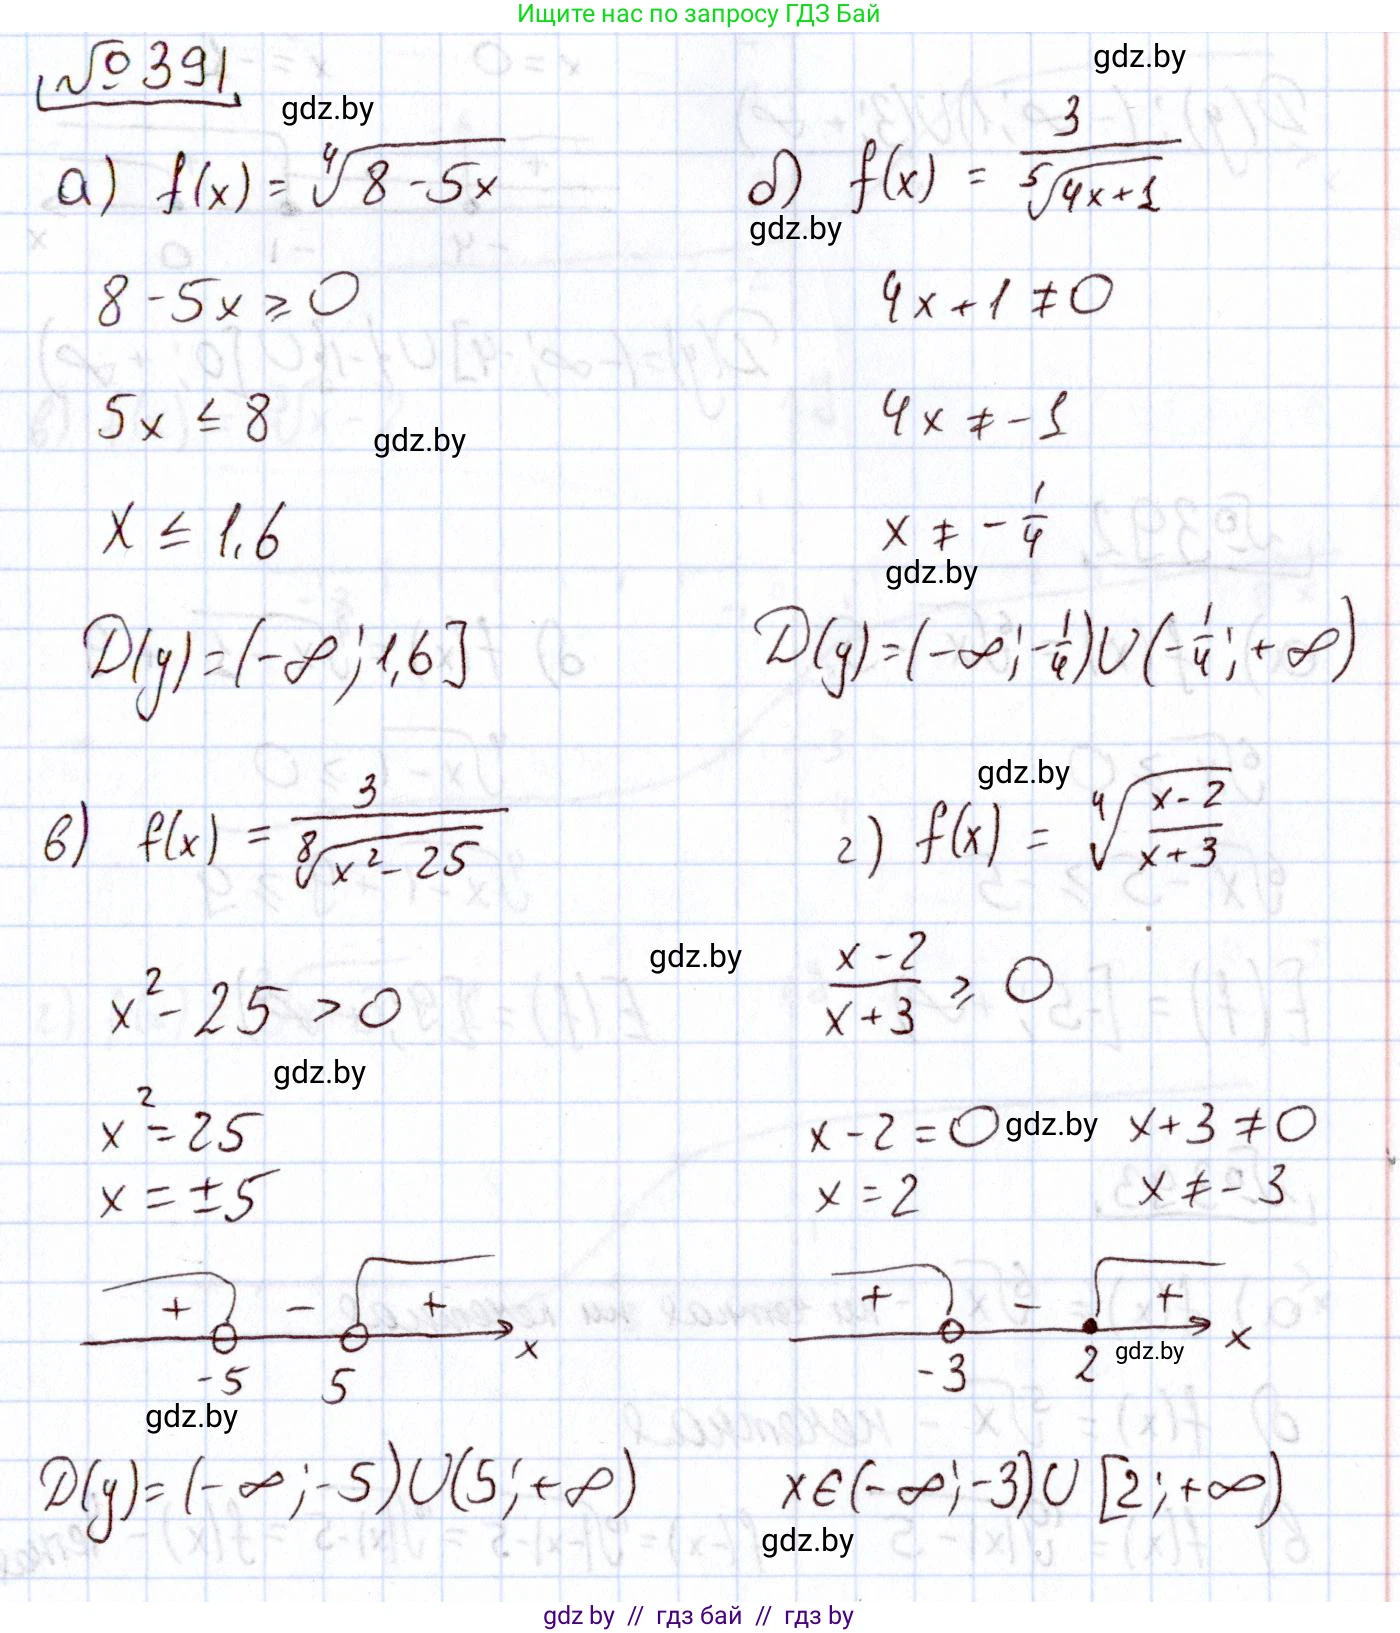 Ищите нас по запросу ГДЗ Бай
№391
gdz.by
gdz.by
а) f(x) = ⁴√(8-5x)
8-5x ⩾ 0
5x ≤ 8
gdz.by
x ≤ 1,6
D(y)=(-∞; 1,6]
б) f(x) = 3/⁵√(4x+1)
gdz.by
4x+1 ≠ 0
4x ≠ -1
x ≠ -1/4
gdz.by
D(y)=(-∞; -1/4)∪(-1/4; +∞)
в) f(x) = 3/⁸√(x²-25)
x²-25 > 0
gdz.by
x²=25
x = ±5
+ - +
-5 5 x
gdz.by
D(y)=(-∞; -5)∪(5; +∞)
gdz.by
г) f(x) = ⁴√((x-2)/(x+3))
gdz.by
(x-2)/(x+3) ⩾ 0
x-2=0 gdz.by x+3≠0
x=2 x≠-3
+ - +
-3 2 gdz.by x
x∈(-∞; -3)∪[2; +∞)
gdz.by
gdz by // гдз бай // gdz by